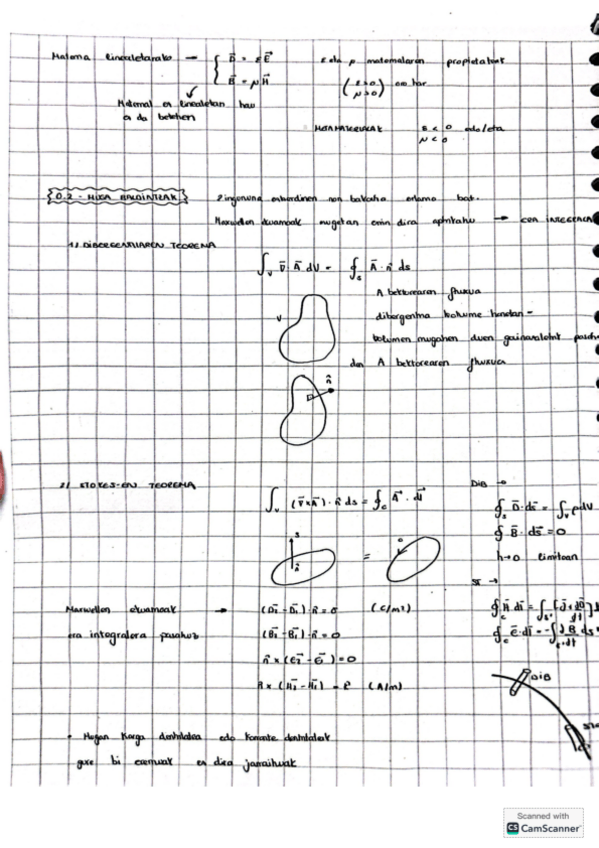 Materia linealetarako → { D̄ = εĒ
B̄ = μH̄
ε eta μ materialaren propietateak
(ε>0
μ>0) ohi
Material ez linealetan hau
ez da betetzen
METAMATERIALAK ε < 0 edo/eta
μ < 0
0.2 - MUGA BALDINTZAK
2 ingurune
non bakoitza
bat.
Maxwellen ekuazioak mugetan ezin dira aplikatu →
1/ DIBERGENTZIAREN TEOREMA
∫v ∇̄ Ā dV = ∮s Ā · n̂ ds
V
A bektorearen fluxua
dibergentzia bolumen honetan =
bolumen mugatzen duen gainazaletik
den A bektorearen fluxua
n̂
2/ STOKES-EN TEOREMA
∫v (∇̄×Ā) · n̂ ds = ∮c Ā · dl̄
DIB →
∮s D̄ · ds̄ = ∫v ρ dV
∮ B̄ · ds̄ = 0
h→0 limitean
S
n̂
=
ST →
∮c H̄ dl̄ = ∫s [J̄ + dD̄/dt]
∮c ē · dl̄ = -∫s dB/dt ds
Maxwellen ekuazioak → (D̄₂ - D̄₁) · n̂ = σ (C/m²)
era integralera pasatuz (B̄₂ - B̄₁) · n̂ = 0
n̂ × (ē₂ - ē₁) = 0
n̂ × (H̄₂ - H̄₁) = (A/m)
DIB
• Mugan karga dentsitatea edo korronte dentsitateak
gure bi eremuak ez dira jarraituak
Scanned with
CS CamScanner